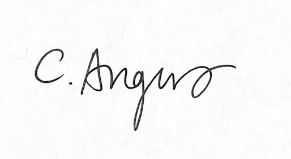 C. Angus